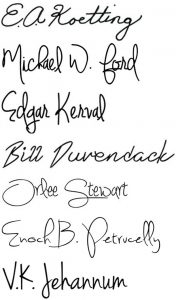 E.A. Koetting
Michael W. Ford
Edgar Kerval
Bill Duvendack
Orlee Stewart
Enoch B. Petrucelly
V.K. Jehannum